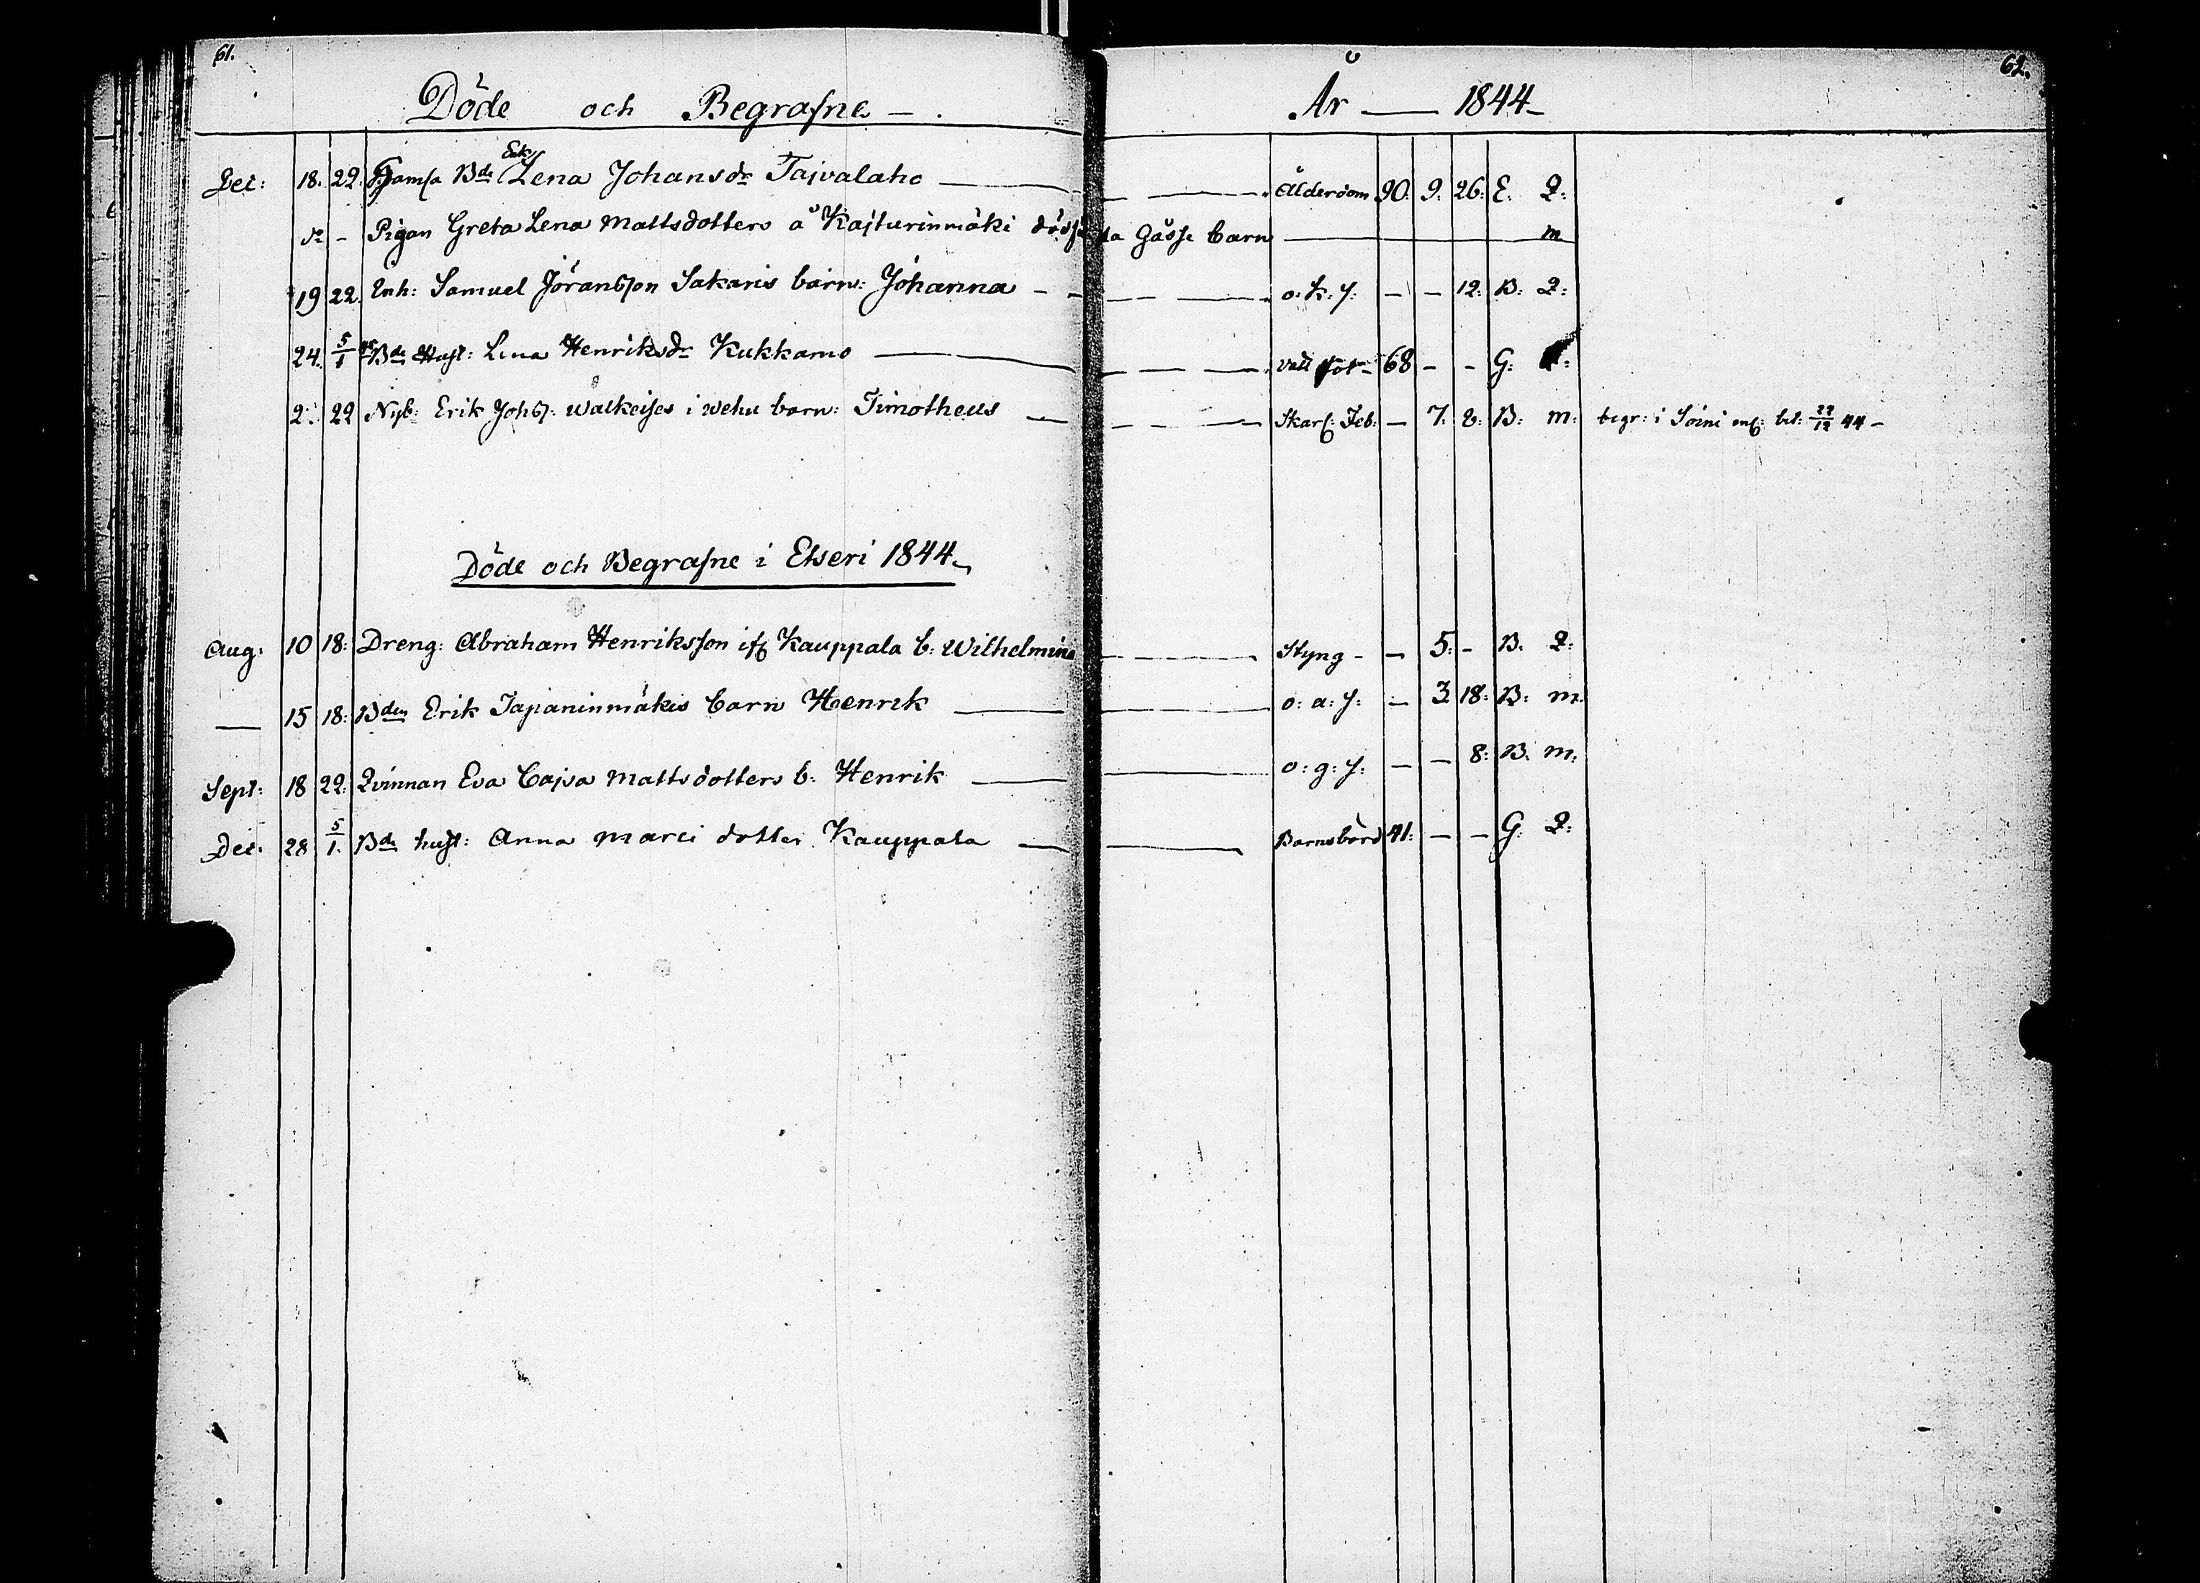 61. 62.
Döde och Begrafne — . År — 1844 —
Dec: 18. 22. Gamla Bde Enk Lena Johansdr Taivalaho — Ålderdom 90. 9. 26. E. Q:
dº - Pigan Greta Lena Mattsdotters å Kajturinmäki dödfödda Gåsse barn — m
19 22. Inh: Samuel Jöransson Sakaris barn: Johanna — o: k: s: — — 12: B: Q:
24. 5/1 Bde Hust: Lena Henriksdr Kukkarno — Vatt sot — 68 - - G:
2. 22 Nyb: Erik Johss: Walkeises i Wehu barn: Timotheus — Skarl: Feb: — 7. 8: B: m: begr: i Soini enl: bet: 22/12 44 —
Döde och Begrafne i Etseri 1844.
Aug: 10 18: Dreng: Abraham Henriksson ifr Kauppala b: Wilhelmina — Styng - — 5. - B. Q:
— 15 18: Bden Erik Tapaninmäkis barn Henrik — o: a: s: — 3 18: B: m.
Sept: 18 22: Qvinnan Eva Cajsa Mattsdotters b: Henrik — o: g: s: — — 8: B. m:
Dec. 28 5/1. Bde hust: Anna Marci dotter Kauppala — Barnsbörd 41: — — G. Q: